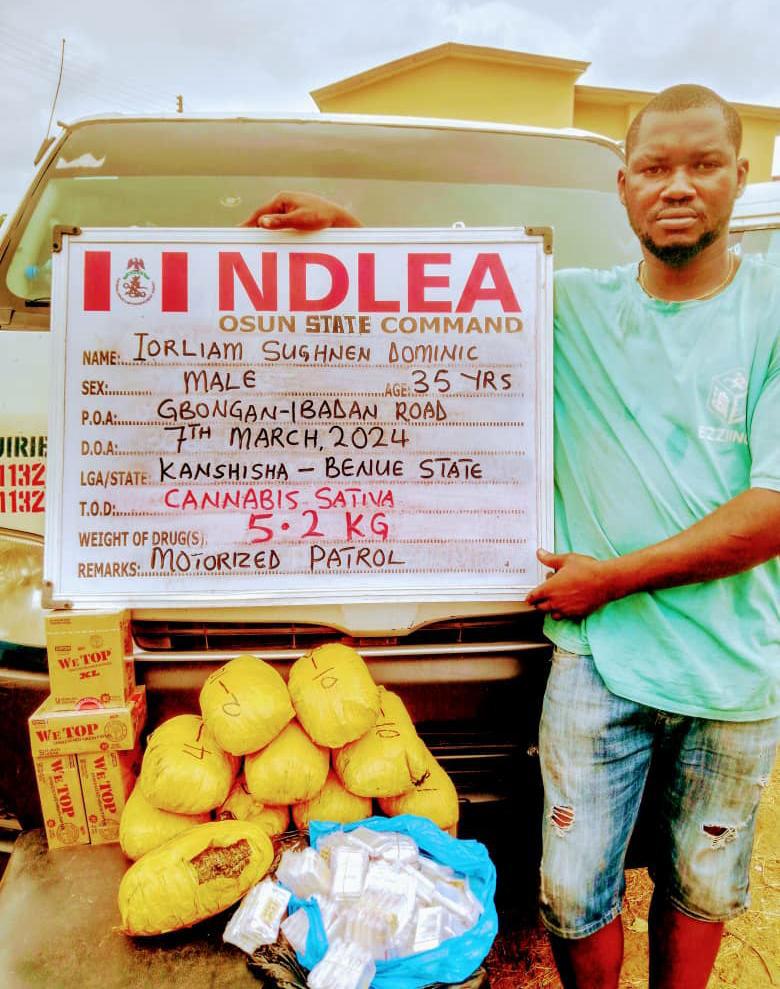 NDLEA
OSUN STATE COMMAND
NAME: IORLIAM SUGHNEN DOMINIC
SEX: MALE AGE: 35 YRS
P.O.A: GBONGAN-IBADAN ROAD
D.O.A: 7TH MARCH, 2024
LGA/STATE: KANSHISHA - BENUE STATE
T.O.D: CANNABIS SATIVA
WEIGHT OF DRUG(S): 5.2 KG
REMARKS: MOTORIZED PATROL
UIRIE
1132
1132
WE TOP
XL
WE TOP
WE TOP
WE TOP
4-
-10